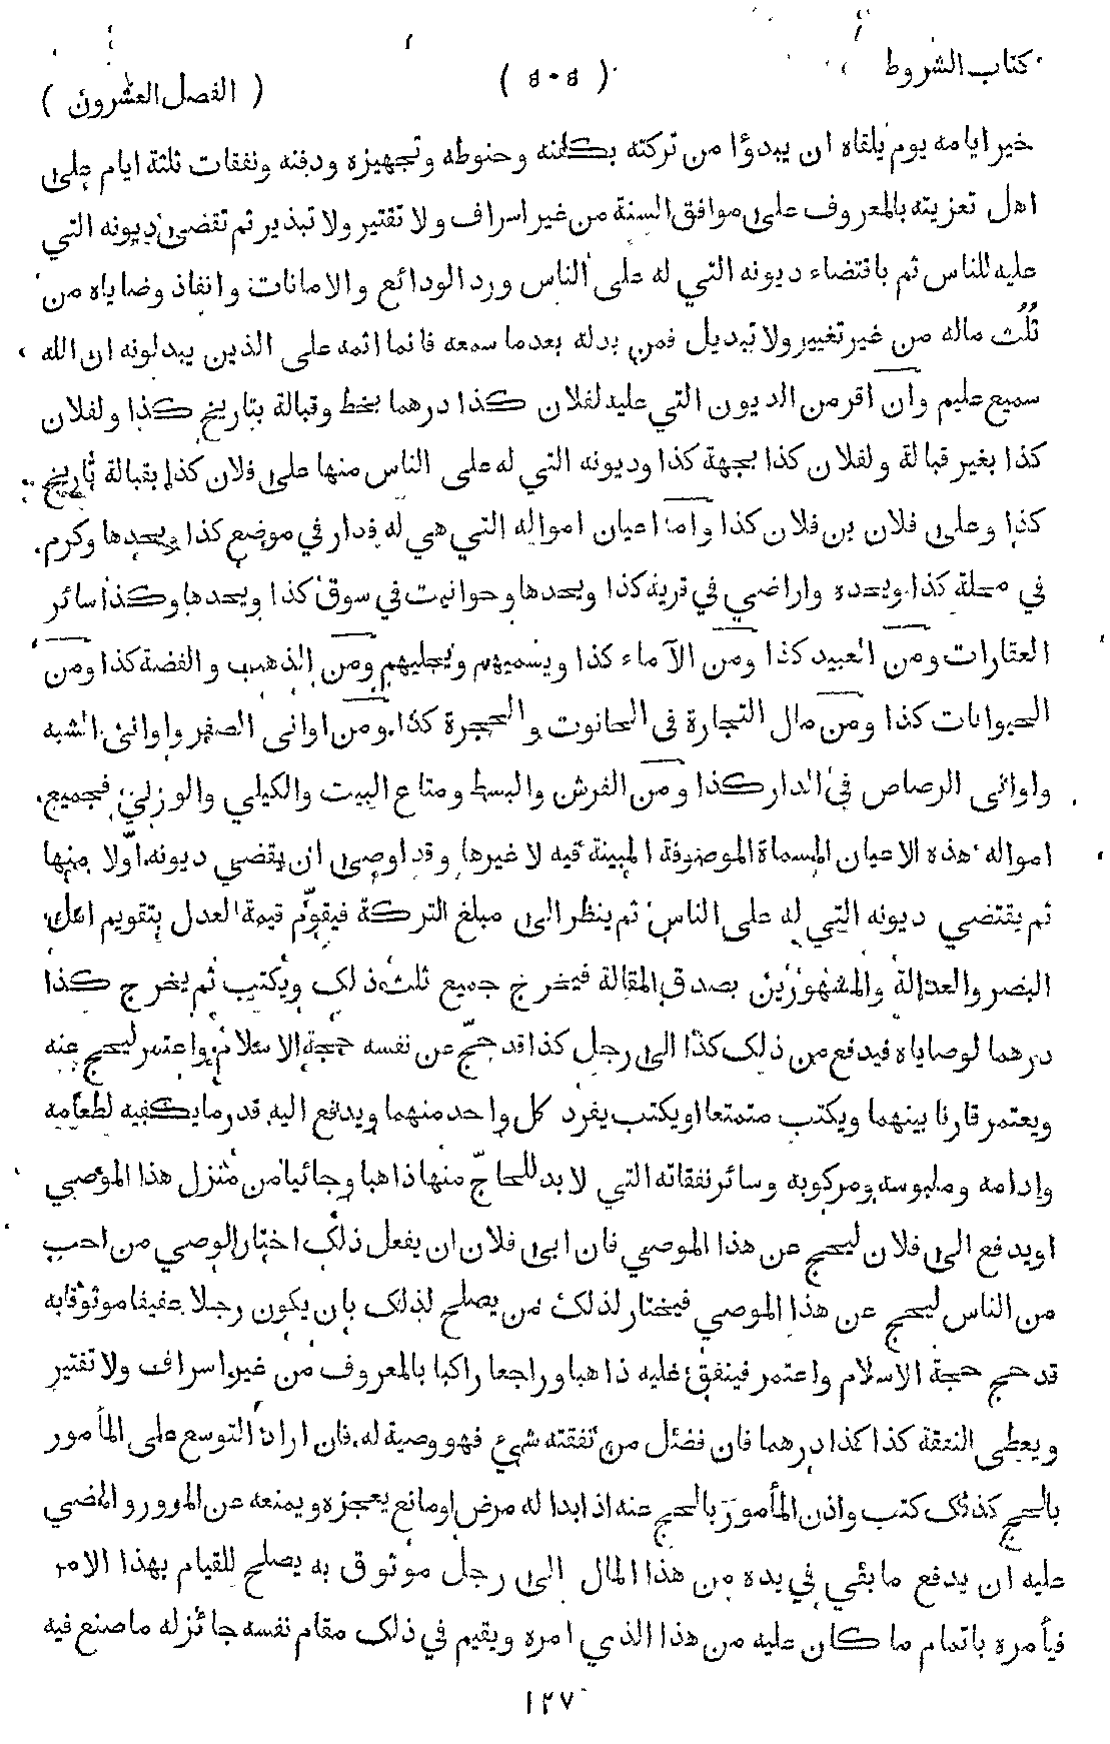 كتاب الشروط (٥٠٥) (الفصل العشرون)
خير ايامه يوم يلقاه ان يبدؤا من تركته بكفنه وحنوطه وتجهيزه ودفنه ونفقات ثلثة ايام على
اهل تعزيته بالمعروف على موافق السنة من غير اسراف ولا تقتير ولا تبذير ثم تقضى ديونه التي
عليه للناس ثم باقتضاء ديونه التي له على الناس ورد الودائع والامانات وانفاذ وصاياه من
ثُلُث ماله من غير تغيير ولا تبديل فمن بدله بعدما سمعه فانما اثمه على الذين يبدلونه ان الله
سميع عليم وان اقر من الديون التي عليه لفلان كذا درهما بخط وقبالة بتاريخ كذا ولفلان
كذا بغير قبالة ولفلان كذا بجهة كذا وديونه التي له على الناس منها على فلان كذا بقبالة تاريخ
كذا وعلى فلان بن فلان كذا واما اعيان امواله التي هي له فدار في موضع كذا ويحدها وكرم
في محلة كذا ويحده واراضي في قرية كذا ويحدها وحوانيت في سوق كذا ويحدها وكذا سائر
العقارات ومن العبيد كذا ومن الآماء كذا ويسميهم ويحليهم ومن الذهب والفضة كذا ومن
الحيوانات كذا ومن مال التجارة فى الحانوت والحجرة كذا ومن اوانى الصفر واوانى الشبه
واوانى الرصاص في الدار كذا ومن الفرش والبسط ومتاع البيت والكيلي والوزني فجميع
امواله هذه الاعيان المسماة الموصوفة المبينة فيه لا غيرها وقد اوصى ان يقضي ديونه اوّلا منها
ثم يقتضي ديونه التي له على الناس ثم ينظر الى مبلغ التركة فيقوّم قيمة العدل بتقويم اهل
البصر والعدالة والمشهورين بصدق المقالة فيخرج جميع ثلث ذلك ويكتب ثم يخرج كذا
درهما لوصاياه فيدفع من ذلك كذا الى رجل كذا قد حجّ عن نفسه حجة الاسلام واعتمر ليحج عنه
ويعتمر قارنا بينهما ويكتب متمتعا او يكتب يفرد كل واحد منهما ويدفع اليه قدر ما يكفيه لطعامه
وادامه وملبوسه ومركوبه وسائر نفقاته التي لا بد للحاجّ منها ذاهبا وجائيا من منزل هذا الموصي
او يدفع الى فلان ليحج عن هذا الموصي فان ابى فلان ان يفعل ذلك اختار الوصي من احب
من الناس ليحج عن هذا الموصي فيختار لذلك من يصلح لذلك بان يكون رجلا عفيفا موثوقا به
قد حج حجة الاسلام واعتمر فينفق عليه ذاهبا وراجعا راكبا بالمعروف من غير اسراف ولا تقتير
ويعطى النفقة كذا كذا درهما فان فضل من نفقته شيء فهو وصية له فان اراد التوسع على المأمور
بالحج كذلك كتب واذن المأمور بالحج عنه اذا بدا له مرض او مانع يعجزه ويمنعه عن المرور والمضي
عليه ان يدفع ما بقي في يده من هذا المال الى رجل موثوق به يصلح للقيام بهذا الامر
فيأمره باتمام ما كان عليه من هذا الذي امره ويقيم في ذلك مقام نفسه جائز له ما صنع فيه
١٢٧